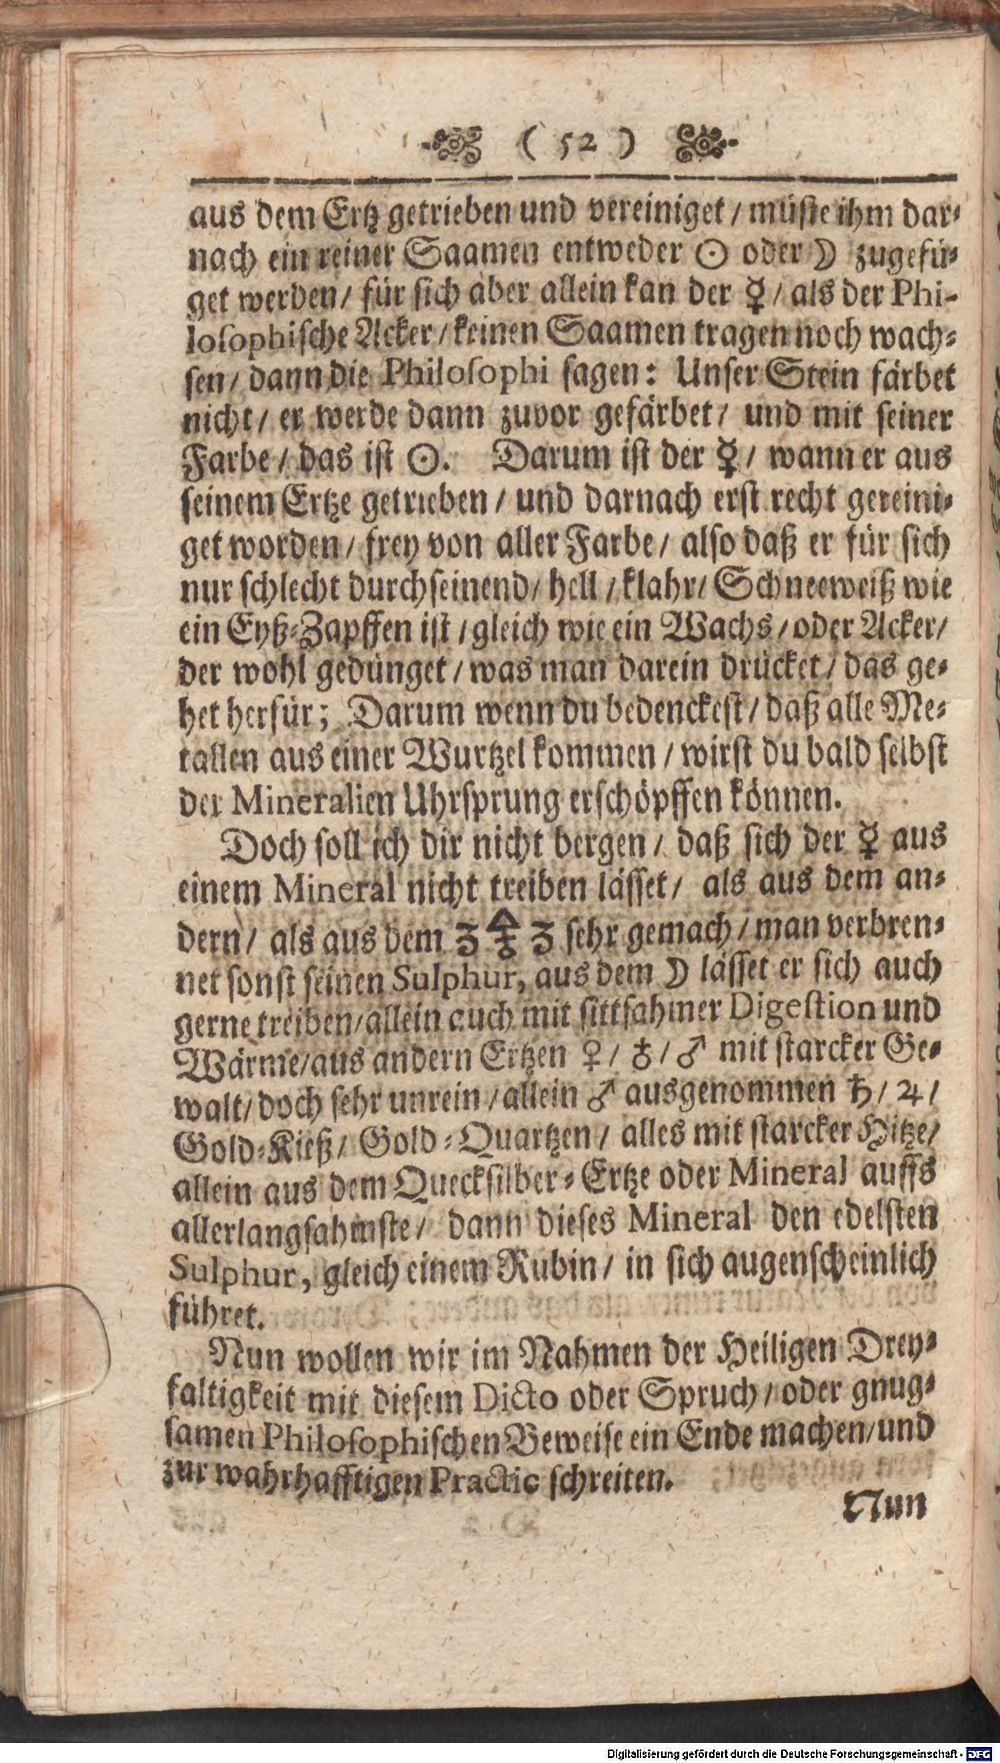 ( 52 )
aus dem Ertz getrieben und vereiniget / müste ihm dar-
nach ein reiner Saamen entweder ☉ oder ☽ zugefü-
get werden / für sich aber allein kan der ☿ / als der Phi-
losophische Acker / keinen Saamen tragen noch wach-
sen / dann die Philosophi sagen: Unser Stein färbet
nicht / er werde dann zuvor gefärbet / und mit seiner
Farbe / das ist ☉. Darum ist der ☿ / wann er aus
seinem Ertze getrieben / und darnach erst recht gereini-
get worden / frey von aller Farbe / also daß er für sich
nur schlecht durchseinend / hell / klahr / Schneeweiß wie
ein Eyß-Zapffen ist / gleich wie ein Wachs / oder Acker /
der wohl gedünget / was man darein drücket / das ge-
het herfür; Darum wenn du bedenckest / daß alle Me-
tallen aus einer Wurtzel kommen / wirst du bald selbst
der Mineralien Uhrsprung erschöpffen können.
Doch soll ich dir nicht bergen / daß sich der ☿ aus
einem Mineral nicht treiben lässet / als aus dem an-
dern / als aus dem sehr gemach / man verbren-
net sonst seinen Sulphur, aus dem ☽ lässet er sich auch
gerne treiben / allein auch mit sittsahmer Digestion und
Wärme / aus andern Ertzen ♀ / ♁ / ♂ mit starcker Ge-
walt / doch sehr unrein / allein ♂ ausgenommen ♄ / ♃ /
Gold-Kieß / Gold-Quartzen / alles mit starcker Hitze /
allein aus dem Quecksilber-Ertze oder Mineral auffs
allerlangsahmste / dann dieses Mineral den edelsten
Sulphur, gleich einem Rubin / in sich augenscheinlich
führet.
Nun wollen wir im Nahmen der Heiligen Drey-
faltigkeit mit diesem Dicto oder Spruch / oder gnug-
samen Philosophischen Beweise ein Ende machen / und
zur wahrhafftigen Practic schreiten.
Nun
Digitalisierung gefördert durch die Deutsche Forschungsgemeinschaft - DFG